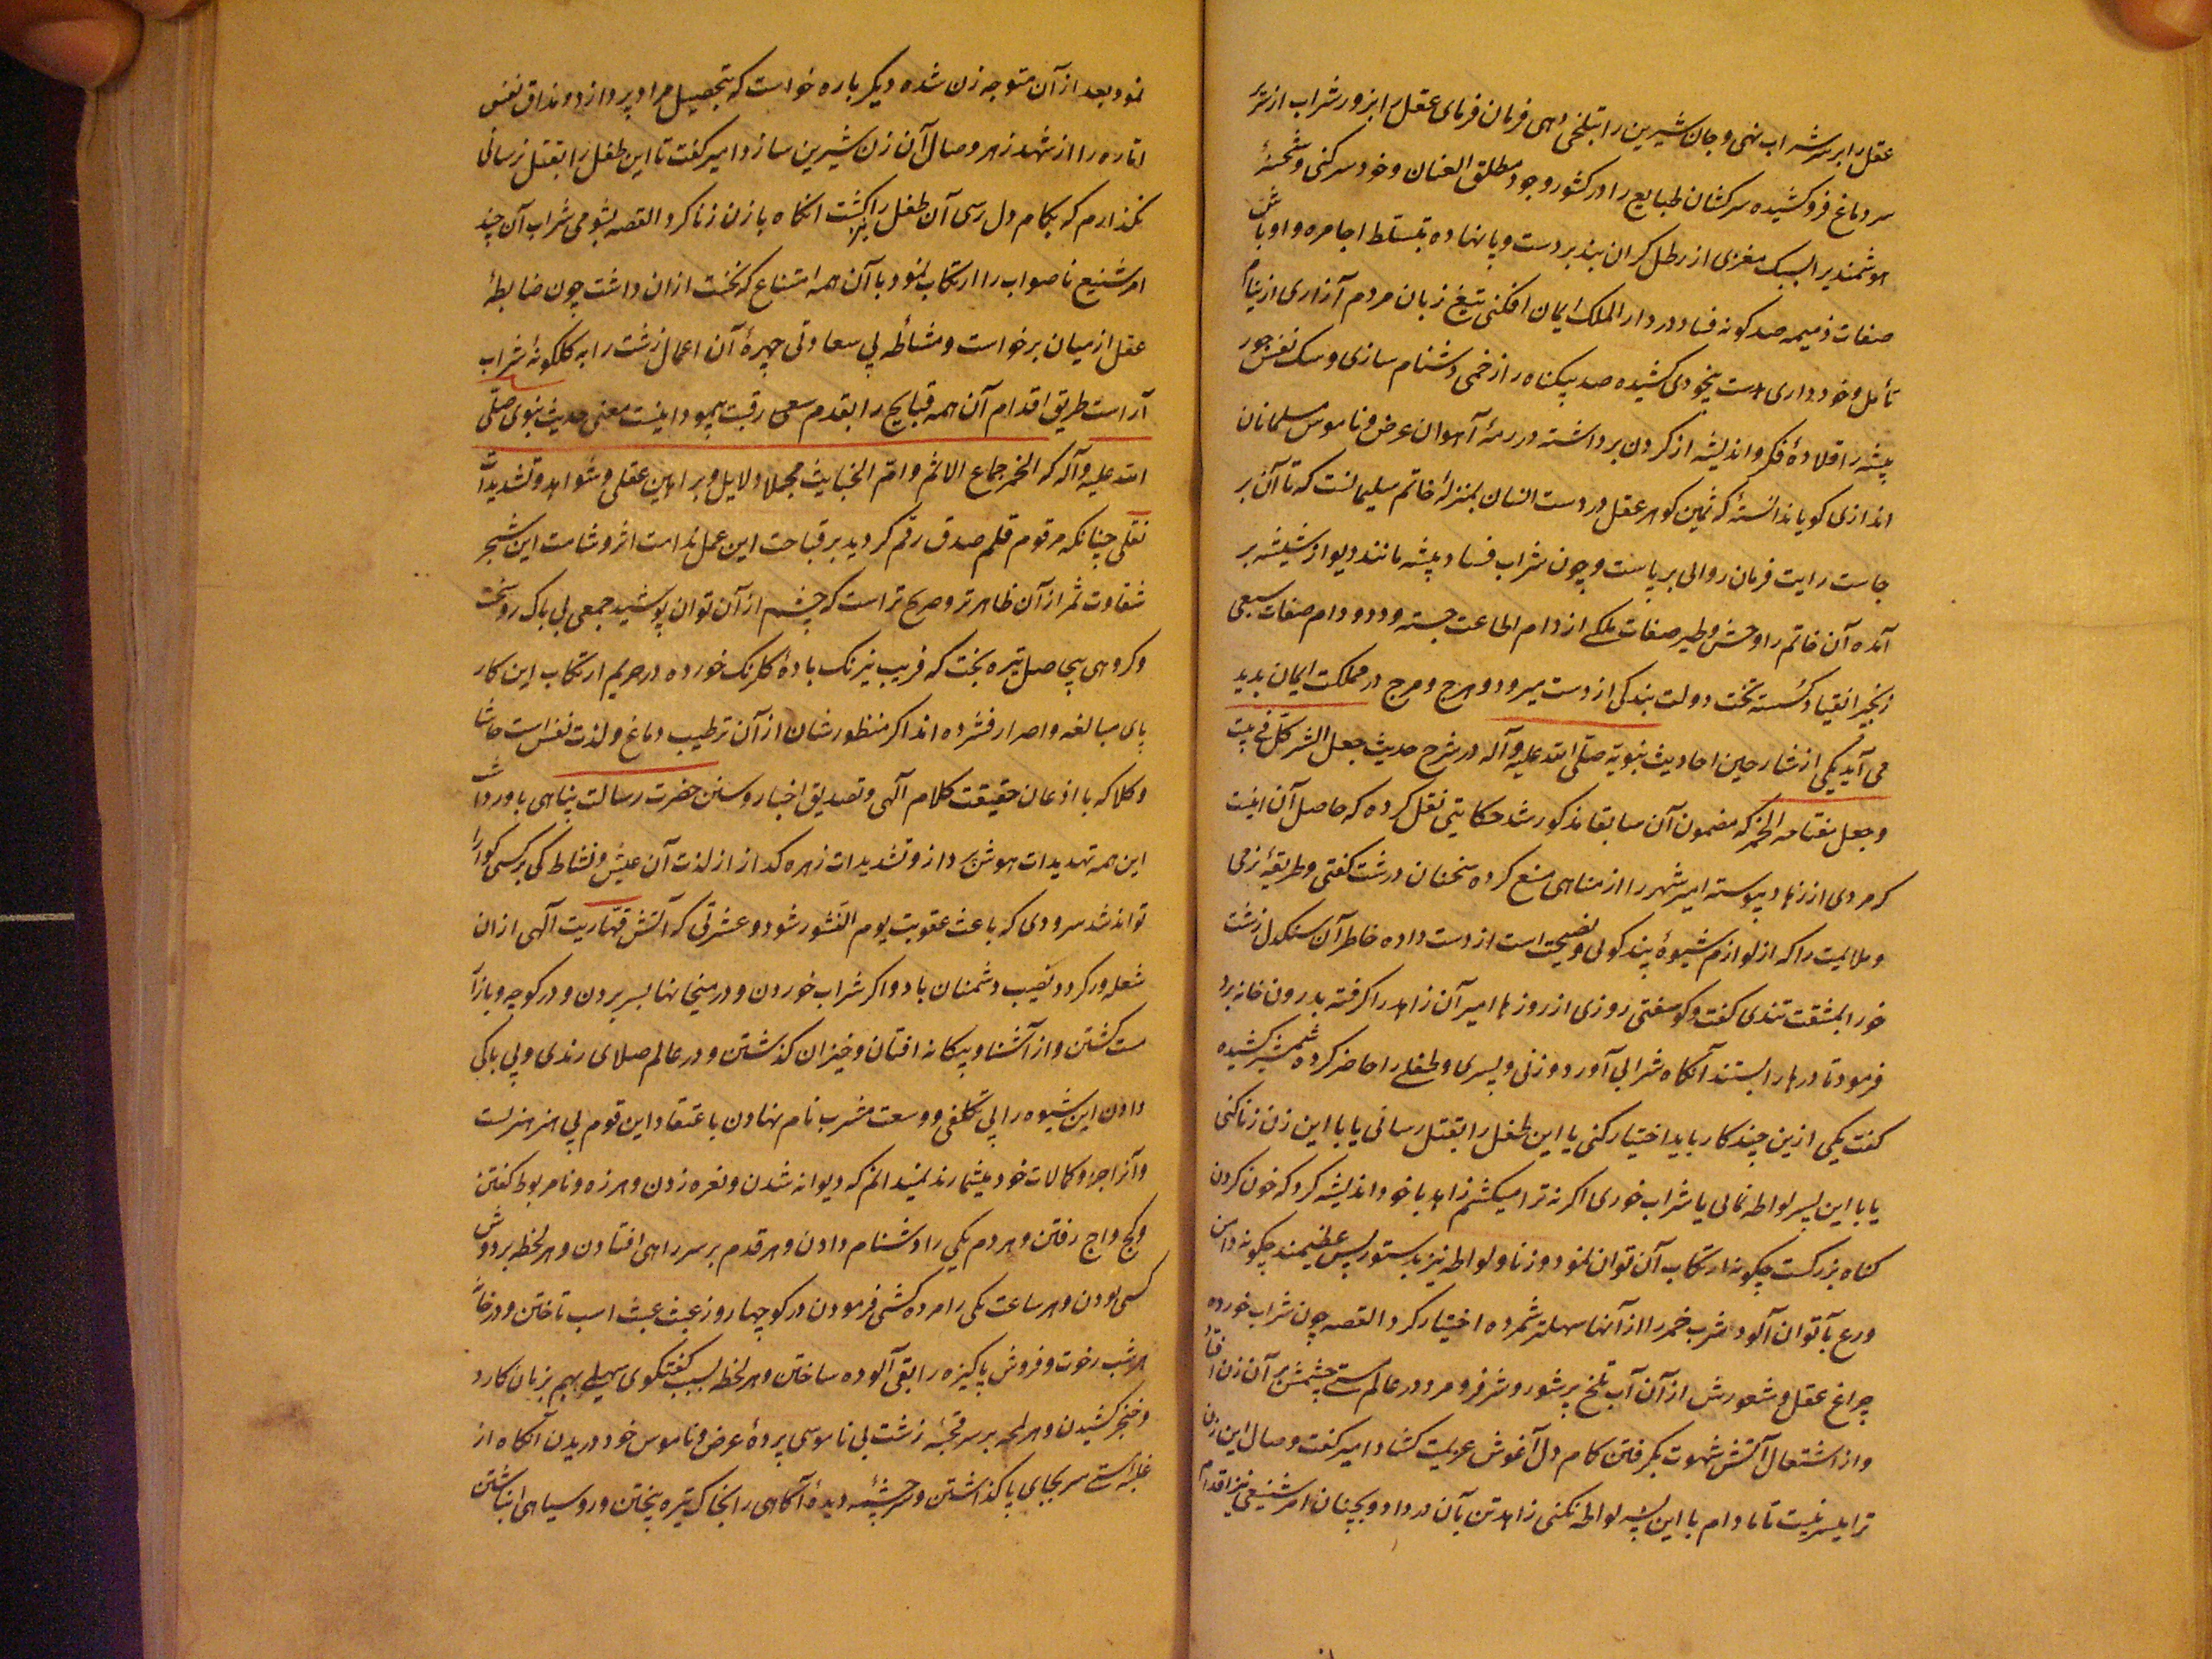 عقل را بر سر شراب نهی و جان شیرین را بتلخی دهی فرمان فرمای عقل را بزور شراب از
سر دماغ فرو کشیده سرکشان طبایع را در کشور وجود مطلق العنان و خود سر کنی و شحنهٔ
هوشمندیرا بسبک مغزی از رطل کران بند بر دست و پا نهاده بتسلط اجامره و اوباش
صفات ذمیمه صد کونه فساد در دار الملک ایمان افکنی تیغ زبان مردم آزاری از نیام
تأمل و خود داری بدست بیخودی کشیده صد بیکناه را زخمی دشنام سازی و سک نفس جور
پیشه را قلادهٔ فکر و اندیشه از کردن برداشته در رمهٔ آهوان عرض و ناموس مسلمانان
اندازی کویا ندانستهٔ که ثمین کوهر عقل در دست انسان بمنزلهٔ خاتم سلیمانست که تا آن بر
جاست رایت فرمان روائی بر پاست و چون شراب فساد پیشه مانند دیو از شیشه بر
آمده آن خاتم را وحش و طیر صفات ملکی از دام اطاعت جسته و دد و دام صفات سبعی
زنجیر انقیاد کسسته تخت دولت بندکی از دست میرود و هرج و مرج در مملکت ایمان پدید
می آید یکی از شارحین احادیث نبویه صلی الله علیه و آله در شرح حدیث جعل الشر کله فی بیت
و جعل مفتاحه الخمر که مضمون آن سابقا مذکور شد حکایتی نقل کرده که حاصل آن اینست
که مردی از زهاد پیوسته امیر شهر را از مناهی منع کرده سخنان درشت کفتی و طریقهٔ نرمی
و ملایمت را که از لوازم شیوهٔ پند کوئی و نصیحت است از دست داده خاطر آن سنکدل زشت
خو را بمشقت تندی کفت و کو سفتی روزی از روزها امیر آن زاهد را کرفته بدرون خانه برد
فرمود تا درها را بستند آنکاه شرابی آورد و زنی و پسری و طفلی را حاضر کرده شمشیر کشیده
کفت یکی ازین چند کار باید اختیار کنی یا این طفل را بقتل رسانی یا با این زن زنا کنی
یا با این پسر لواطه نمائی یا شراب خوری اکر نه ترا میکشم زاهد با خود اندیشه کرد که خون کردن
کناه بزرکست چکونه ارتکاب آن توان نمود و زنا و لواطه نیز بدستور بس عظیمند چکونه دامن
ورع بآن توان آلود شرب خمر را از آنها سهلتر شمرده اختیار کرد القصه چون شراب خورده
چراغ عقل و شعورش از آن آب تلخ پر شور و شر فرو مرد و در عالم مستی چشمش بر آن زن افتاد
و از اشتعال آتش شهوت بکرفتن کام دل آغوش عزیمت کشاد امیر کفت وصال این زن
ترا میسر نیست تا مادام با این پسر لواطه نکنی زاهد تن بآن در داد و بچنان امر شنیعی نیز اقدام
نمود بعد از آن متوجه زن شده دیکر باره خواست که بتحصیل مراد پردازد و مذاق نفس
اماره را از شهد زهر وصال آن زن شیرین سازد امیر کفت تا این طفل را بقتل نرسانی
نکذارم که بکام دل رسی آن طفل را نیز بکشت آنکاه با زن زنا کرد القصه بشومی شراب آن چند
امر شنیع ناصواب را ارتکاب نمود با آن همه امتناع که نخست ازان داشت چون ضابطهٔ
عقل از میان برخواست و مشاطهٔ بی سعادتی چهرهٔ آن اعمال زشت را به کلکونهٔ شراب
آراست طریق اقدام آن همه قبایح را بقدم سعی رغبت پیمود اینست معنی حدیث نبوی صلی
الله علیه و آله که الخمر جماع الاثم و ام الخبایث مجملا دلایل و براهین عقلی و شواهد و تشدیدات
نقلی چنانکه مرقوم قلم صدق رقم کردید بر قباحت این عمل ندامت اثر و شامت این شجر
شقاوت ثمر از آن ظاهر تر و صریح تر است که چشم از آن توان پوشید جمعی بی باک رو سخت
و کروهی بیحاصل تیره بخت که فریب نیرنک بادهٔ کلرنک خورده در حریم ارتکاب این کار
پای مبالغه و اصرار فشرده اند اکر منظورشان از آن ترطیب دماغ و لذت نفس است حاشا
و کلا که با اذعان حقیقت کلام آلهی و تصدیق اخبار و سنن حضرت رسالت پناهی باور داشت
این همه تهدیدات هوش پرداز و تشدیدات زهره کداز از لذت آن عیش و نشاط کی بر کسی کوارا
تواند شد سرودی که باعث عقوبت یوم النشور شود و عشرتی که آتش قهاریت آلهی ازان
شعله ور کردد نصیب دشمنان باد و اکر شراب خوردن و در میخانها بسر بردن و در کوچه و بازار
مست کشتن و از آشنا و بیکانه افتان و خیزان کذشتن و در عالم صلای رندی و بی باکی
دادن این شیوه را بی تکلفی و وسعت مشرب نام نهادن باعتقاد این قوم بی هنر هنریست
و آنرا جزو کمالات خود میشمارند نمیدانم که دیوانه شدن و نعره زدن و هرزه و نامربوط کفتن
و کج و اج رفتن و هر دم یکی را دشنام دادن و هر قدم بر سر راهی افتادن و هر لحظه بر دوش
کسی بودن و هر ساعت یکی را مرده کشی فرمودن در کوچها روز عبث عبث اسب تاختن و در خانه
هر شب رخوت و فروش پاکیزه را بقی آلوده ساختن و هر لحظه بسبب کفتکوی سهلی بهم بزبان کارد
و خنجر کشیدن و هر لمحه بر سر قحبهٔ زشت بی ناموسی پردهٔ عرض و ناموس خود دریدن آنکاه از
غلبهٔ مستی سر بجای پا کذاشتن و سر چشمهٔ دیدهٔ آکاهی را بخاک تیره بختی و رو سیاهی انباشتن